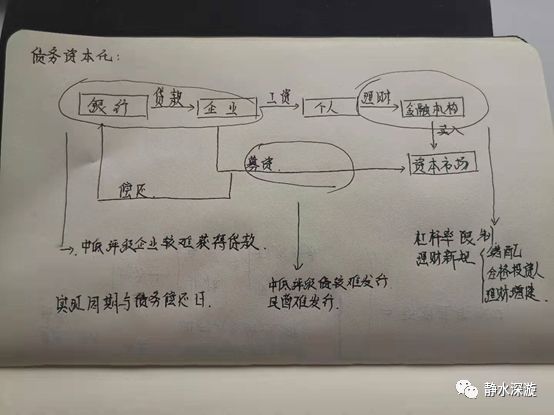 债务资本化：
银行 贷款 企业 工资 个人 理财 金融机构
买入
募资 资本市场
偿还
中低评级企业较难获得贷款.
杠杆率限制
理财新规
错配
合格投资人
理财
中低评级债较难发行
民企难发行.
实际周期与债务偿还
静水深漩